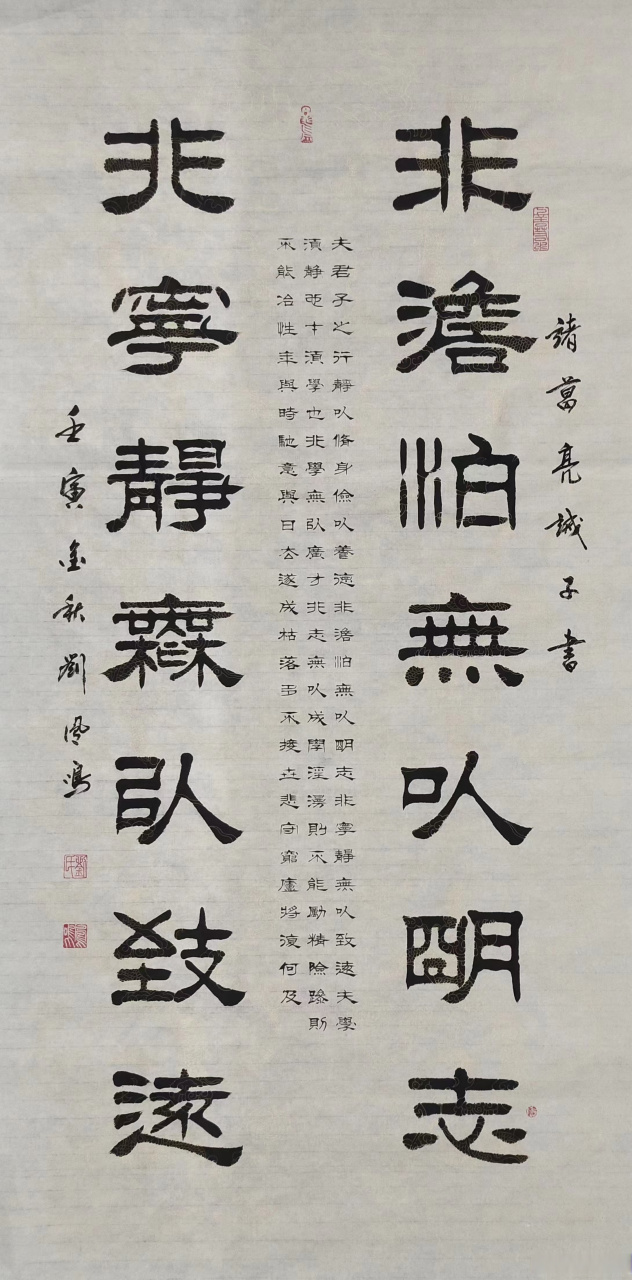 諸葛亮誡子書
非澹泊無以明志
夫君子之行靜以脩身儉以養德非澹泊無以明志非寧靜無以致遠夫學
須靜也才須學也非學無以廣才非志無以成學淫漫則不能勵精險躁則
不能冶性年與時馳意與日去遂成枯落多不接世悲守窮廬將復何及
非寧靜無以致遠
壬寅金秋劉鳳鳴